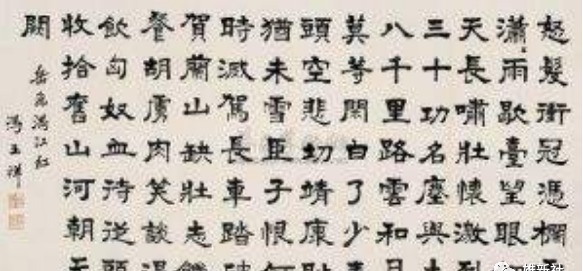 怒髮衝冠憑欄
瀟雨歇臺望眼
天長嘯壯懷激烈
三十功名塵與土
八千里路雲和月
莫等閑白了少年
頭空悲切靖康恥
猶未雪臣子恨
時滅駕長車踏破
賀蘭山缺壯志飢
餐胡虜肉笑談渴
飲匈奴血待從頭
收拾舊山河朝天
闕
岳飛滿江紅
馮玉祥
雄新社